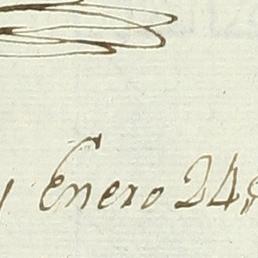 Enero 24